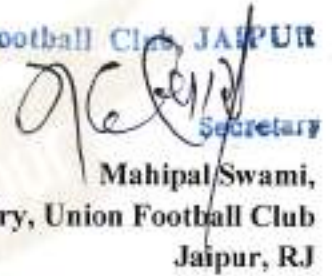 ootball Club, JAIPUR
Secretary
Mahipal Swami,
ry, Union Football Club
Jaipur, RJ